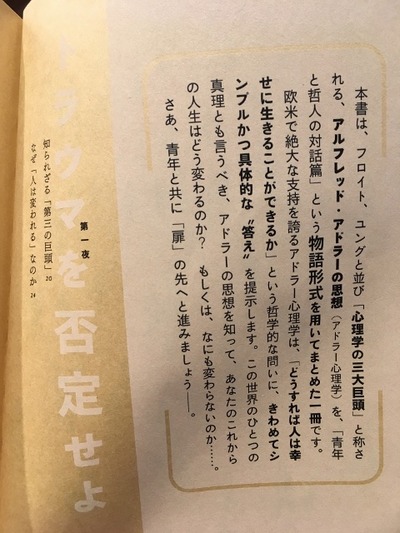 本書は、フロイト、ユングと並び「心理学の三大巨頭」と称さ
れる、アルフレッド・アドラーの思想（アドラー心理学）を、「青年
と哲人の対話篇」という物語形式を用いてまとめた一冊です。
欧米で絶大な支持を誇るアドラー心理学は、「どうすれば人は幸
せに生きることができるか」という哲学的な問いに、きわめてシ
ンプルかつ具体的な〝答え〟を提示します。この世界のひとつの
真理とも言うべき、アドラーの思想を知って、あなたのこれから
の人生はどう変わるのか？　もしくは、なにも変わらないのか……。
さあ、青年と共に「扉」の先へと進みましょう――。
第一夜
トラウマを否定せよ
知られざる「第三の巨頭」 20
なぜ「人は変われる」なのか 24